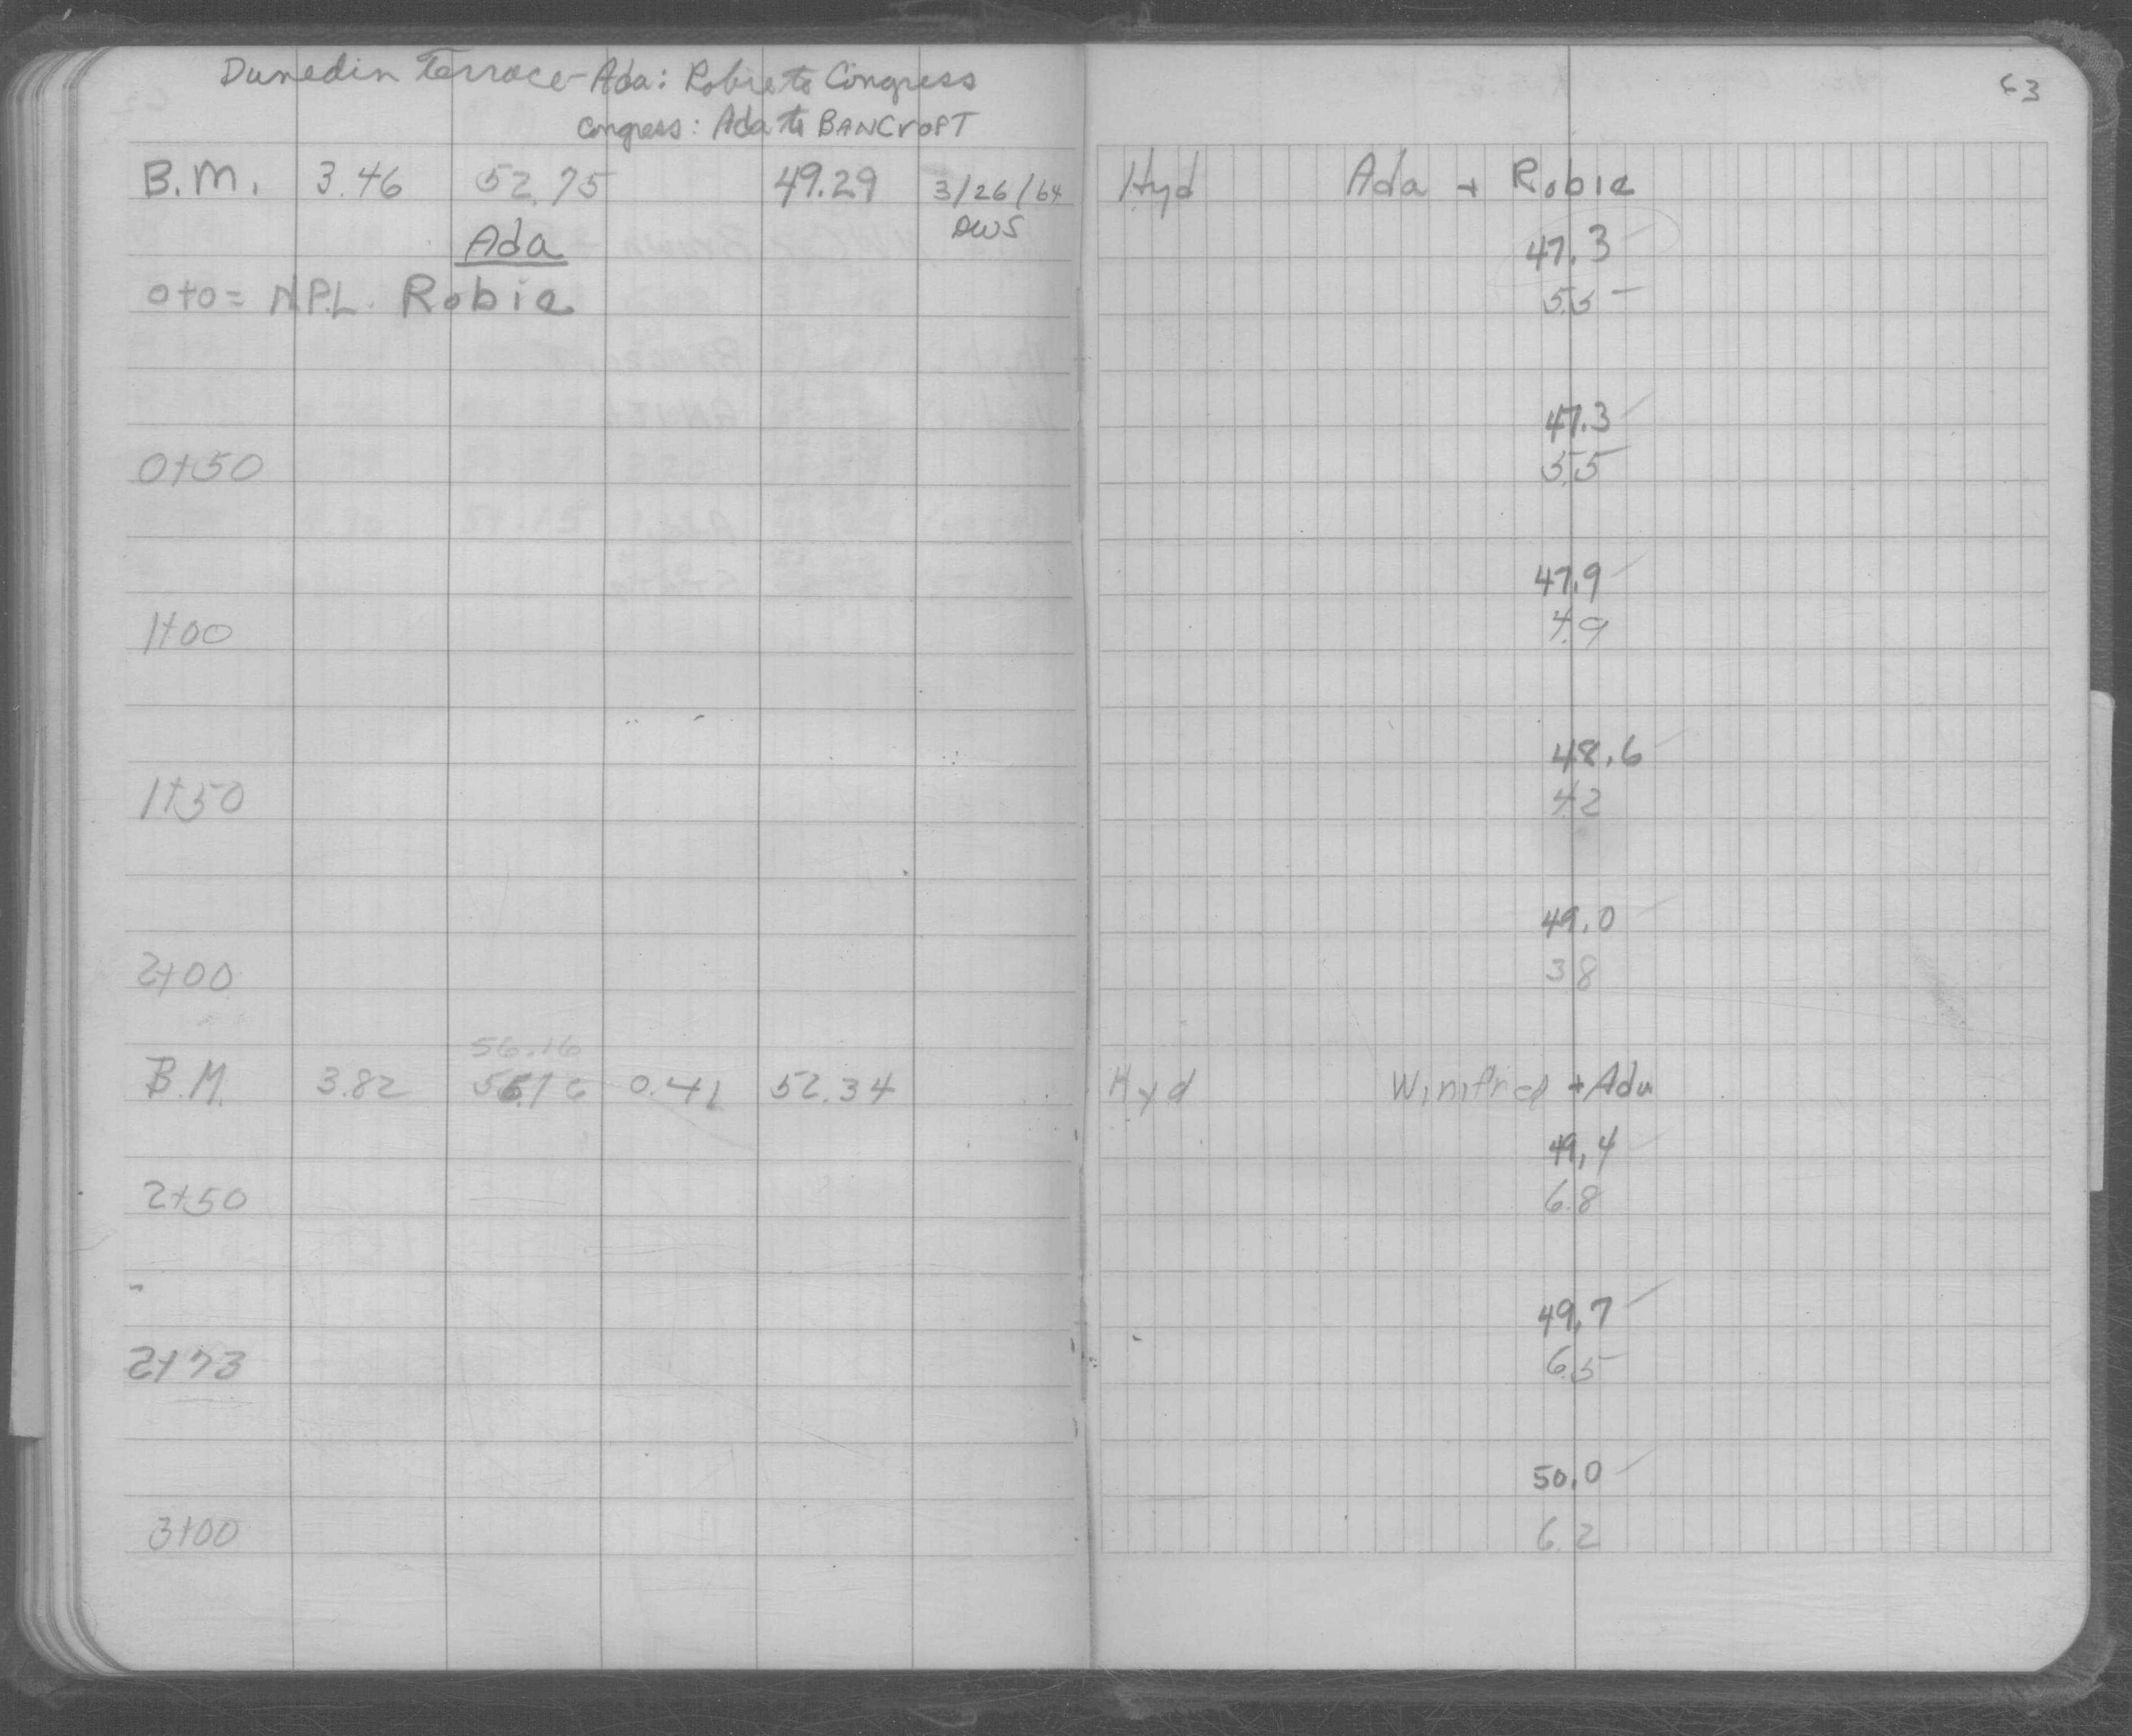 Dunedin Terrace - Ada: Robie to Congress
Congress: Ada to BANCroFT
63
B.M. 3.46 52.75 49.29 3/26/64 Hyd Ada + Robie
DWS
Ada
47.3
0+0 = N.P.L. Robie
5.5
47.3
0+50 5.5
47.9
1+00 4.9
48.6
1+50 4.2
49.0
2+00 3.8
56.16
B.M. 3.82 56.16 0.41 52.34 Hyd Winifred + Ada
49.4
2+50 6.8
49.7
2+73 6.5
50.0
3+00 6.2